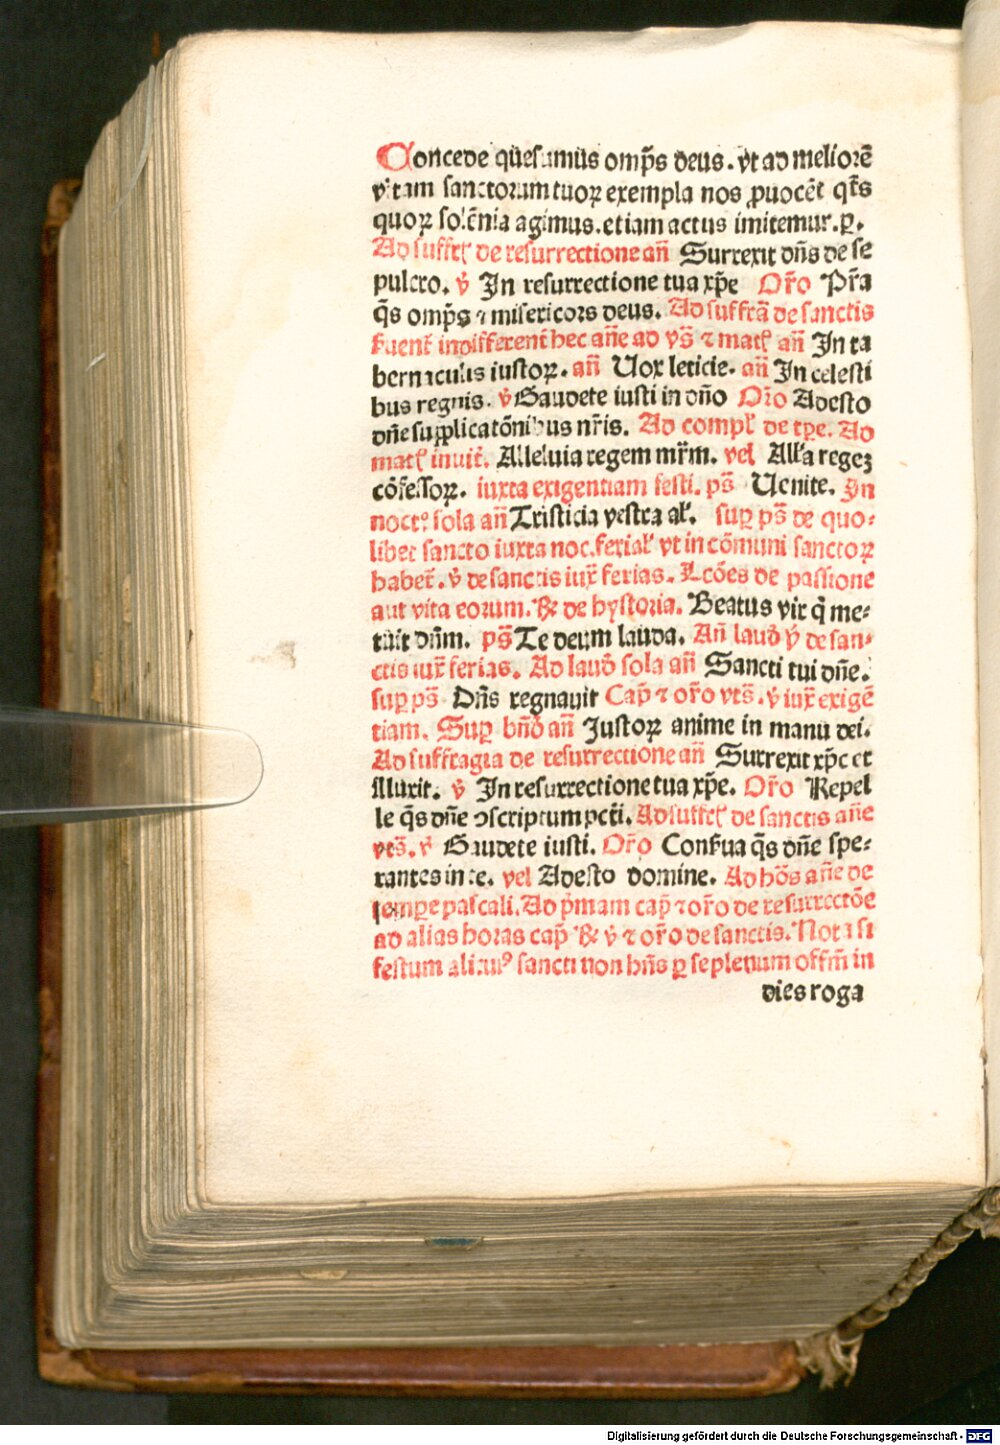 Concede quesumus omp̄s deus. vt ad meliorē
vitam sanctorum tuoꝝ exempla nos ꝓuocēt qt̄s
quoꝝ solēnia agimus. etiam actus imitemur. ꝑ.
Ad suffrꝭ de resurrectione an̄ Surrexit dn̄s de se
pulcro. v̄ In resurrectione tua xp̄e Or̄o Pr̄a
q̄s omp̄s ⁊ misericors deus. Ad suffrā de sanctis
fuerīt indifferent̄ hec an̄e ad vs̄ ⁊ matꝭ an̄ In ta
bernaculis iustoꝝ. an̄ Uox leticie. an̄ In celesti
bus regnis. v̄ Gaudete iusti in dn̄o Or̄o Adesto
dn̄e supplicatōnibus nr̄is. Ad compl̄ de tꝑe. Ad
matꝭ inuit̄. Alleluia regem mr̄m. vel All'a regeꝫ
cōfessoꝝ. iuxta exigentiam festi. ps̄ Uenite. In
noctꝰ sola an̄ Tristicia vestra al'. suꝑ ps̄ de quo⸗
libet sancto iuxta noc. ferial' vt in cōmuni sanctoꝝ
habet̄. v̄ de sanctis iux̄ ferias. Lcōes de passione
aut vita eorum. & de hystoria. Beatus vir q̄ me⸗
tuit dn̄m. ps̄ Te deum lauda. An̄ laud̄ v̄ de san⸗
ctis iux̄ ferias. Ad laud̄ sola an̄ Sancti tui dn̄e.
suꝑ ps̄ Dn̄s regnauit Cap̄ ⁊ or̄o vts̄. v̄ iux̄ exigē
tiam. Suꝑ bn̄d̄ an̄ Justoꝝ anime in manu dei.
Ad suffragia de resurrectione an̄ Surrexit xp̄c et
illuxit. v̄ In resurrectione tua xp̄e. Or̄o Repel
le q̄s dn̄e ↄscriptum pctī. Ad suffrꝭ de sanctis an̄e
vts̄. v̄ Gaudete iusti. Or̄o Conẜua q̄s dn̄e spe⸗
rantes in te. vel Adesto domine. Ad hōs an̄e de
temꝑe pascali. Ad p̄mam cap̄ ⁊ or̄o de resurrectōe
ad alias horas cap̄ & v̄ ⁊ or̄o de sanctis. Nota si
festum alicuiꝰ sancti non hn̄s ꝑ se plenum offm̄ in
dies roga
Digitalisierung gefördert durch die Deutsche Forschungsgemeinschaft - DFG